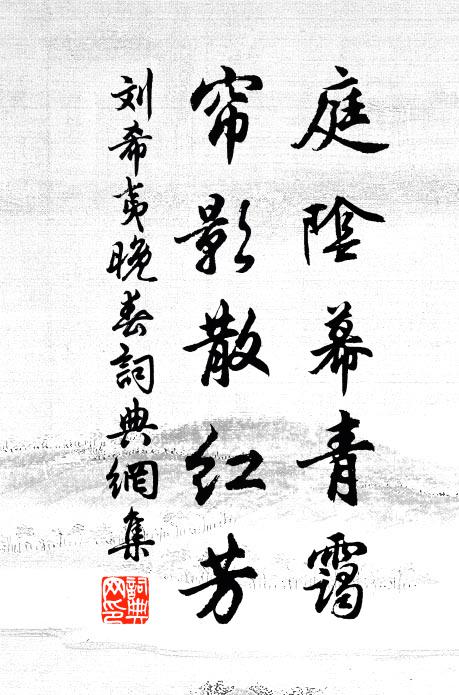 庭陰幕青靄
帘影散红芳
刘希夷晚春詞典網集
詞典
网印